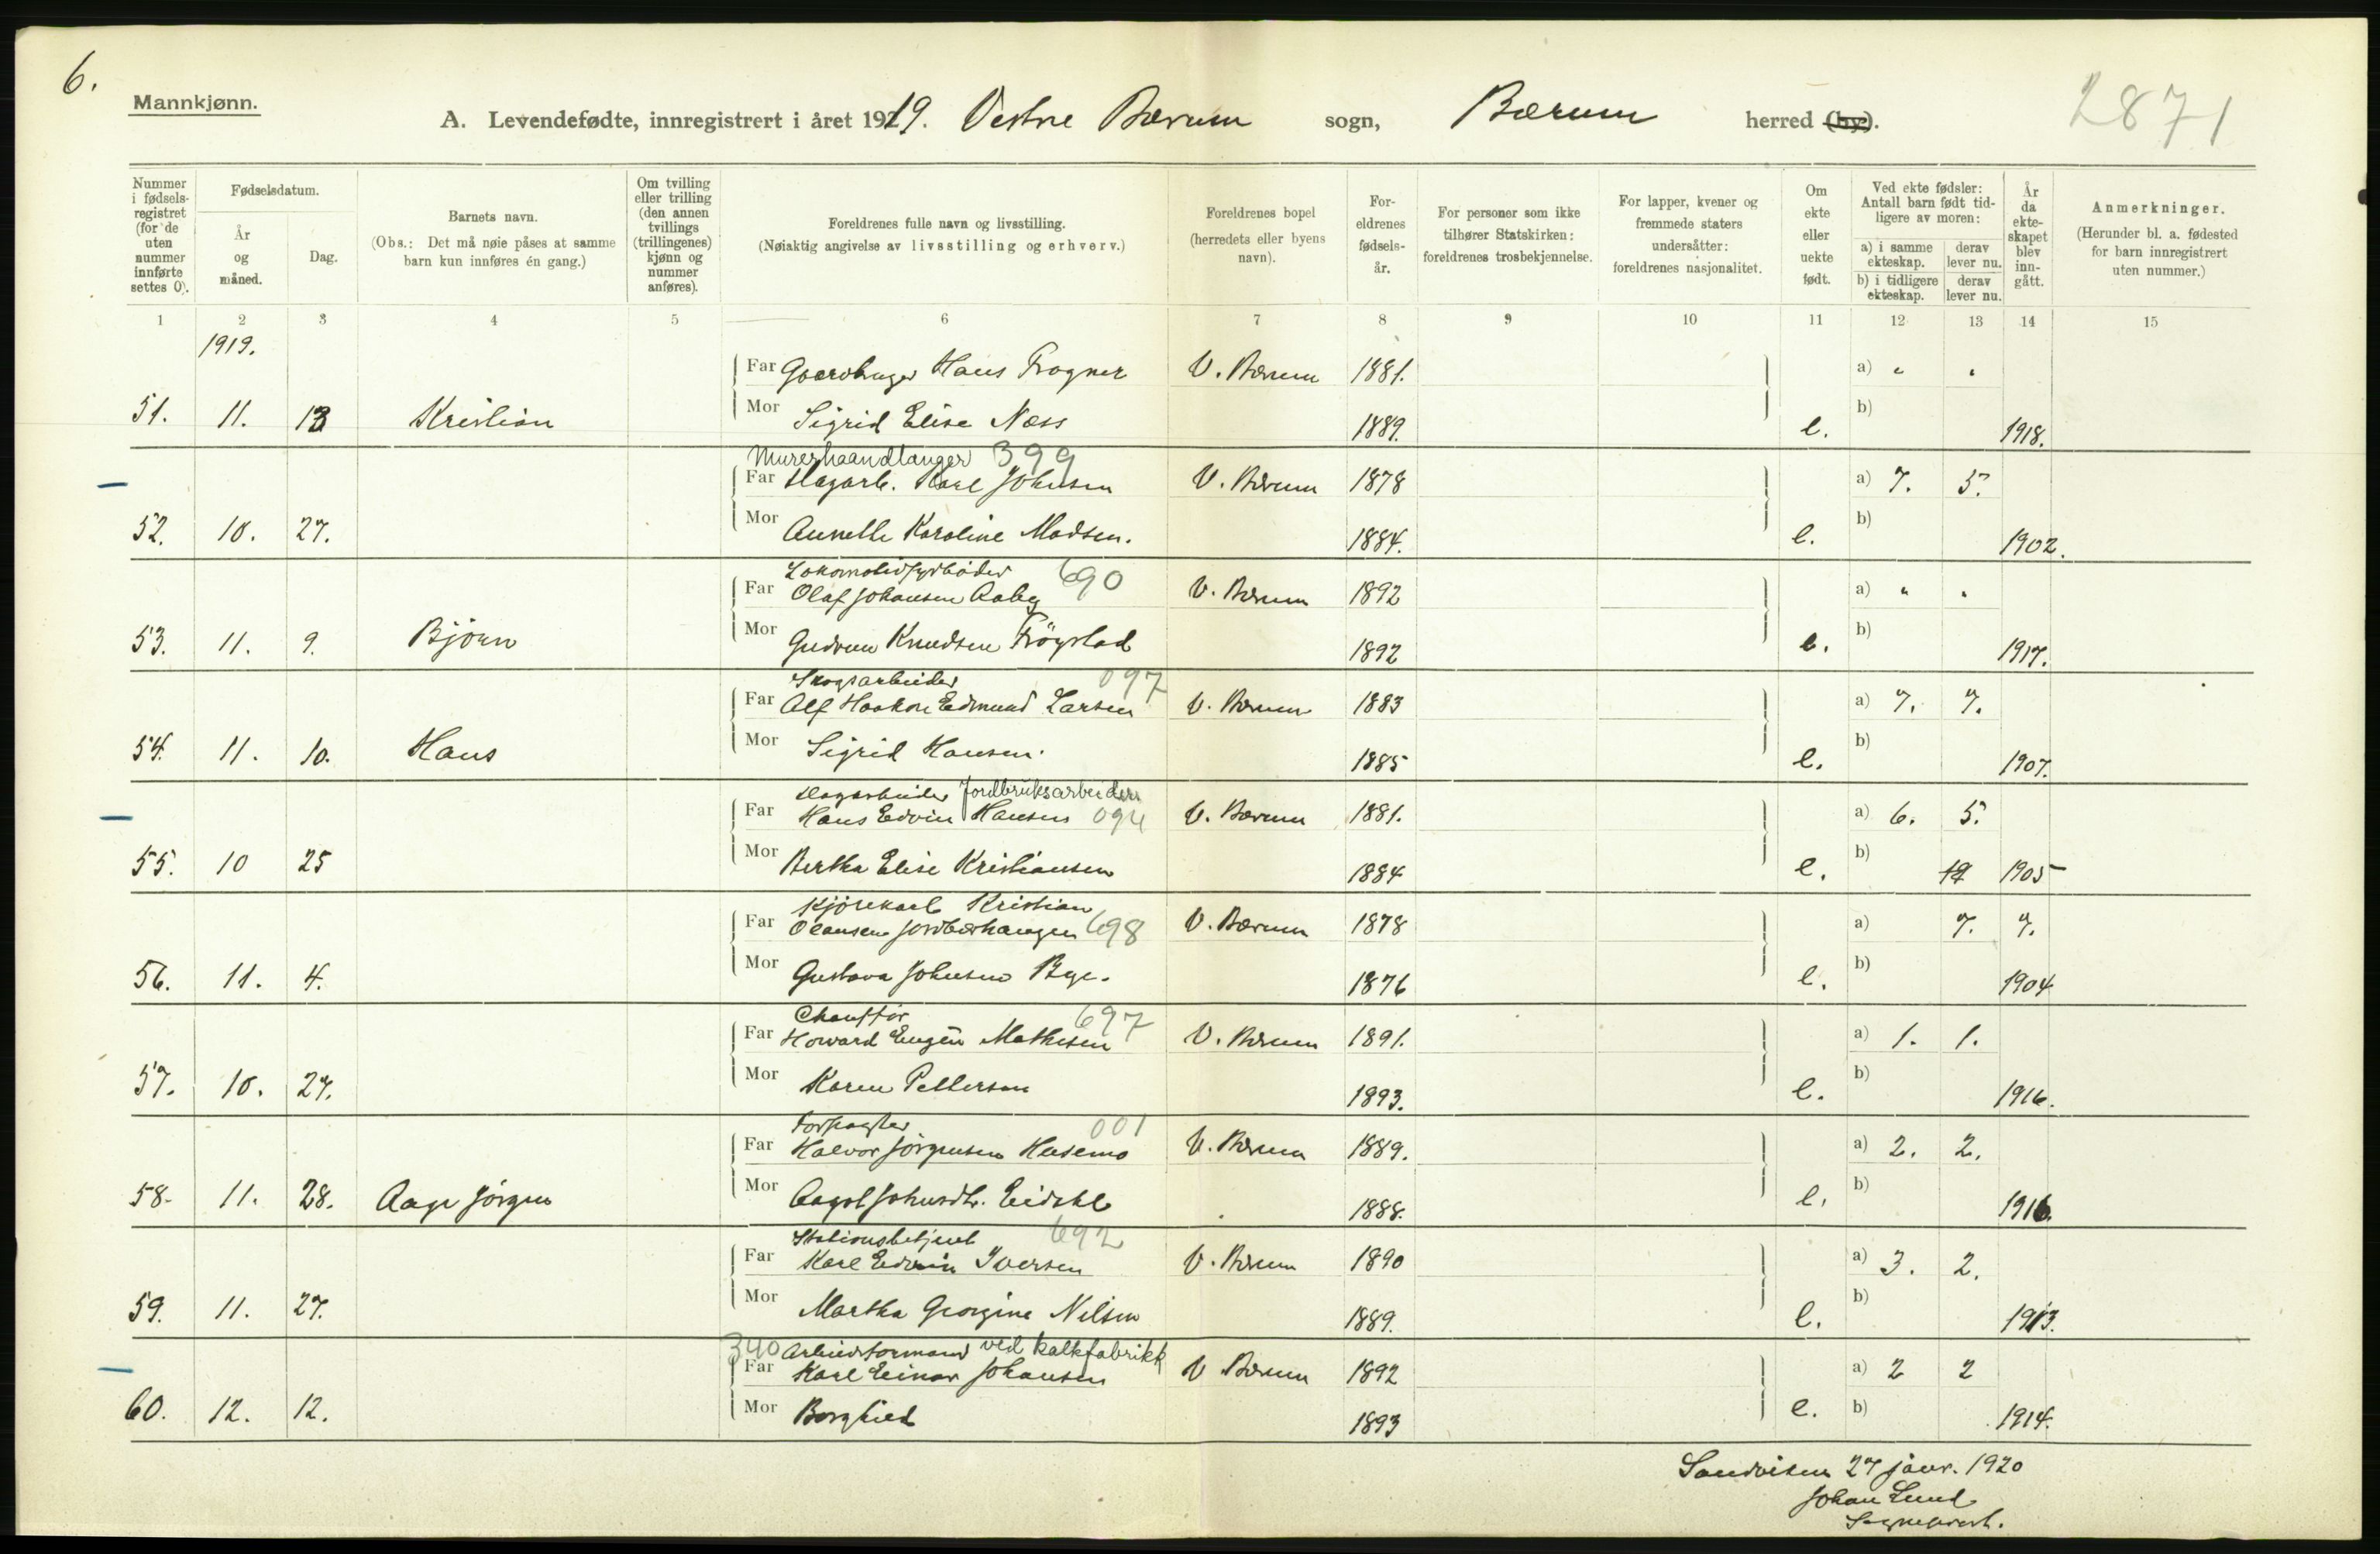 6.
Mannkjønn.
A. Levendefødte, innregistrert i året 1919. Vestre Bærum sogn, Bærum herred (by).
2871
Nummer i fødselsregistret (for de uten nummer innførte settes 0).
Fødselsdatum.
År og måned.
Dag.
Barnets navn.
(Obs.: Det må nøie påses at samme barn kun innføres én gang.)
Om tvilling eller trilling (den annen tvillings (trillingenes) kjønn og nummer anføres).
Foreldrenes fulle navn og livsstilling.
(Nøiaktig angivelse av livsstilling og erhverv.)
Foreldrenes bopel (herredets eller byens navn).
Foreldrenes fødselsår.
For personer som ikke tilhører Statskirken: foreldrenes trosbekjennelse.
For lapper, kvener og fremmede staters undersåtter: foreldrenes nasjonalitet.
Om ekte eller uekte født.
Ved ekte fødsler: Antall barn født tidligere av moren:
a) i samme ekteskap. derav lever nu.
b) i tidligere ekteskap. derav lever nu.
År da ekteskapet blev inngått.
Anmerkninger.
(Herunder bl. a. fødested for barn innregistrert uten nummer.)
1 2 3 4 5 6 7 8 9 10 11 12 13 14 15
1919.
Far Gaardbruger Hans Frogner V. Bærum 1881. a) " "
51. 11. 13 Kristian Mor Sigrid Elise Næss 1889. e. b) 1918.
Murerhaandlanger 399
Far Dagarb. Karl Johnsen V. Bærum 1878 a) 7. 5.
52. 10. 27. Mor Annette Karoline Madsen. 1884. e. b) 1902.
Lokomotivfyrbøder 690
Far Olaf Johansen Aaby V. Bærum 1892 a) " "
53. 11. 9. Bjørn Mor Gudrun Knudsen Frøystad 1892 e. b) 1917.
Skogsarbeider 097
Far Alf Haakon Edmund Larsen V. Bærum 1883 a) 7. 7.
54. 11. 10. Hans Mor Sigrid Hansen. 1885 e. b) 1907.
Dagarbeider Jordbruksarbeider
Far Hans Edvin Hansen 094 V. Bærum 1881. a) 6. 5.
55. 10 25 Mor Bertha Elise Kristiansen 1884 e. b) 19 1905
Kjørekarl Kristian
Far Olausen Jordbærhaugen 698 V. Bærum 1878 a) 7. 7.
56. 11. 4. Mor Gustava Johnsen Bye. 1876 e. b) 1904
Chauffør 697
Far Howard Eugen Mathisen V. Bærum 1891. a) 1. 1.
57. 10. 27. Mor Karen Pettersen 1893. e. b) 1916.
Forpagter 001
Far Halvor Jørgensen Husemo V. Bærum 1889. a) 2. 2.
58. 11. 28. Aage Jørgen Mor Aagot Johnsdtr. 1888. e. b) 1916.
Stationsbetjent 692
Far Karl Edvin Iversen V. Bærum 1890 a) 3. 2.
59. 11. 27. Mor Martha Georgine Nilsen 1889. e. b) 1913.
340 Arbeidsformand ved kalkfabrikk
Far Karl Einar Johansen V Bærum 1892 a) 2 2
60. 12. 12. Mor Borghild 1893 e. b) 1914.
Sandviken 27 janr. 1920
Johan Lund
Sogneprest.